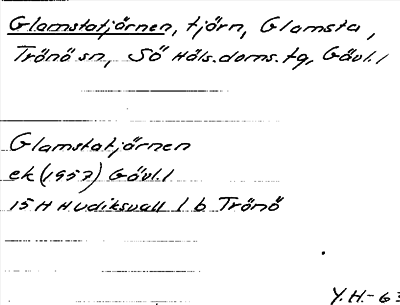 Glamstatjärnen, tjärn, Glamsta,
Trönö sn, Sö Häls. doms. tg, Gävl. l
Glamstatjärnen
ek (1957) Gävl. l
15 H Hudiksvall 1 b Trönö
Y.H. - 63